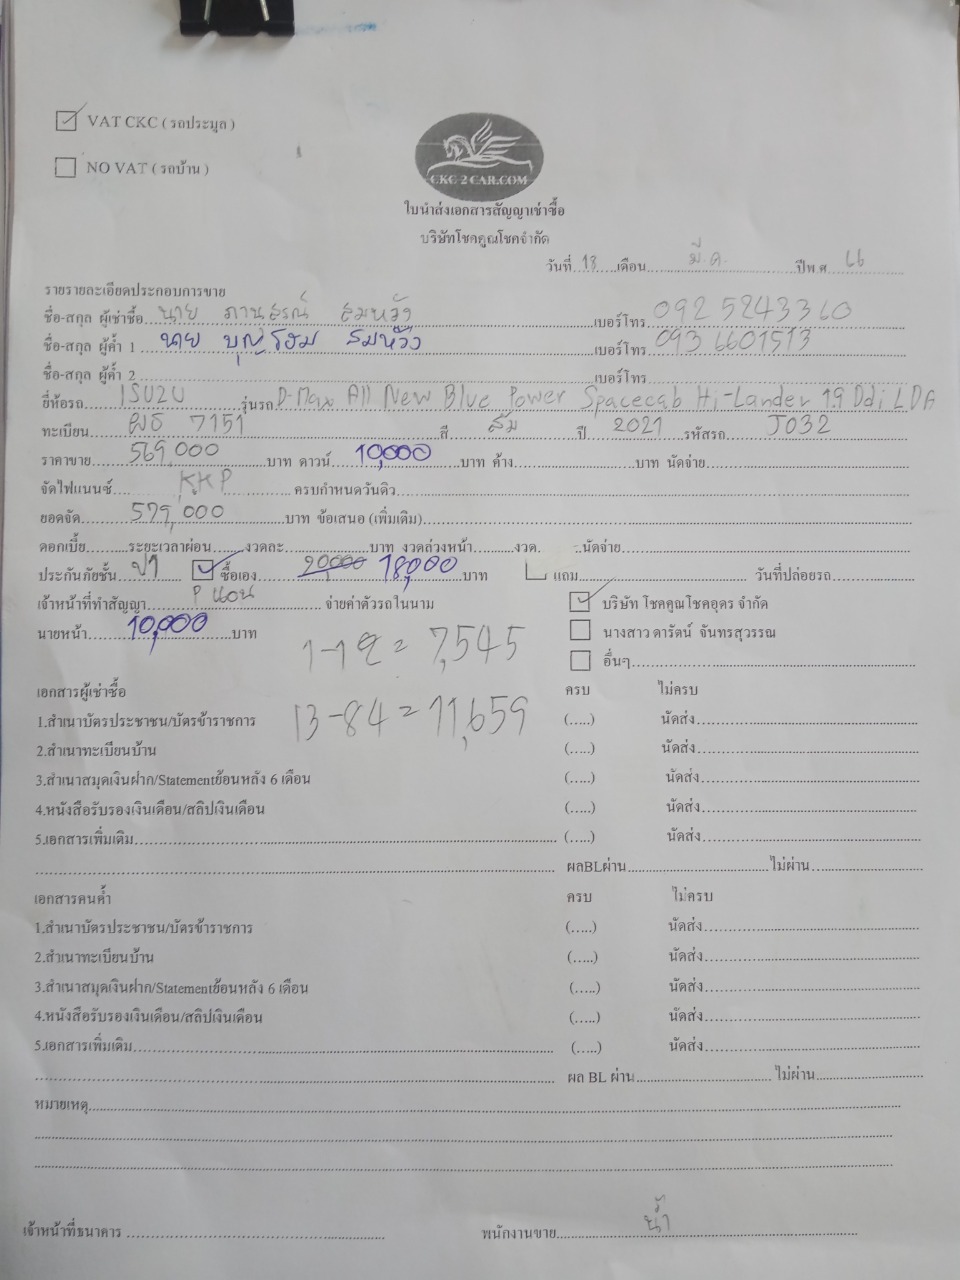 VAT CKC ( รถประมูล )
NO VAT ( รถบ้าน )
CKC-2 CAR.COM
ใบนำส่งเอกสารสัญญาเช่าซื้อ
บริษัทโชคคูณโชคจำกัด
วันที่ 18 เดือน มี.ค. ปีพ ศ 66
รายรายละเอียดประกอบการขาย
ชื่อ-สกุล ผู้เช่าซื้อ นาย ภานุสรณ์ สมหวัง เบอร์โทร 092 5243360
ชื่อ-สกุล ผู้ค้ำ 1 นาย บุญโฮม สมหวัง เบอร์โทร 093 6601513
ชื่อ-สกุล ผู้ค้ำ 2 เบอร์โทร
ยี่ห้อรถ ISUZU รุ่นรถ D-Max All New Blue Power Spacecab Hi-Lander 1.9 Ddi L DA
ทะเบียน ผธ 7151 สี ส้ม ปี 2021 รหัสรถ J032
ราคาขาย 569,000 บาท ดาวน์ 10,000 บาท ค้าง บาท นัดจ่าย
จัดไฟแนนซ์ KKP ครบกำหนดวันดิว
ยอดจัด 579,000 บาท ข้อเสนอ (เพิ่มเติม)
ดอกเบี้ย ระยะเวลาผ่อน งวดละ บาท งวดล่วงหน้า งวด. นัดจ่าย
ประกันภัยชั้น ป1 ซื้อเอง 20,000 18,000 บาท แถม วันที่ปล่อยรถ
เจ้าหน้าที่ทำสัญญา P แอน จ่ายค่าตัวรถในนาม บริษัท โชคคูณโชคอุดร จำกัด
นายหน้า 10,000 บาท นางสาว ดารัตน์ จันทรสุวรรณ
1-12 = 7,545 อื่นๆ
เอกสารผู้เช่าซื้อ ครบ ไม่ครบ
1.สำเนาบัตรประชาชน/บัตรข้าราชการ 13-84 = 11,659 (.....) นัดส่ง
2.สำเนาทะเบียนบ้าน (.....) นัดส่ง
3.สำเนาสมุดเงินฝาก/Statementย้อนหลัง 6 เดือน (.....) นัดส่ง
4.หนังสือรับรองเงินเดือน/สลิปเงินเดือน (.....) นัดส่ง
5.เอกสารเพิ่มเติม (.....) นัดส่ง
ผลBLผ่าน ไม่ผ่าน
เอกสารคนค้ำ ครบ ไม่ครบ
1.สำเนาบัตรประชาชน/บัตรข้าราชการ (.....) นัดส่ง
2.สำเนาทะเบียนบ้าน (.....) นัดส่ง
3.สำเนาสมุดเงินฝาก/Statementย้อนหลัง 6 เดือน (.....) นัดส่ง
4.หนังสือรับรองเงินเดือน/สลิปเงินเดือน (.....) นัดส่ง
5.เอกสารเพิ่มเติม (.....) นัดส่ง
ผล BL ผ่าน ไม่ผ่าน
หมายเหตุ
เจ้าหน้าที่ธนาคาร พนักงานขาย น้ำ